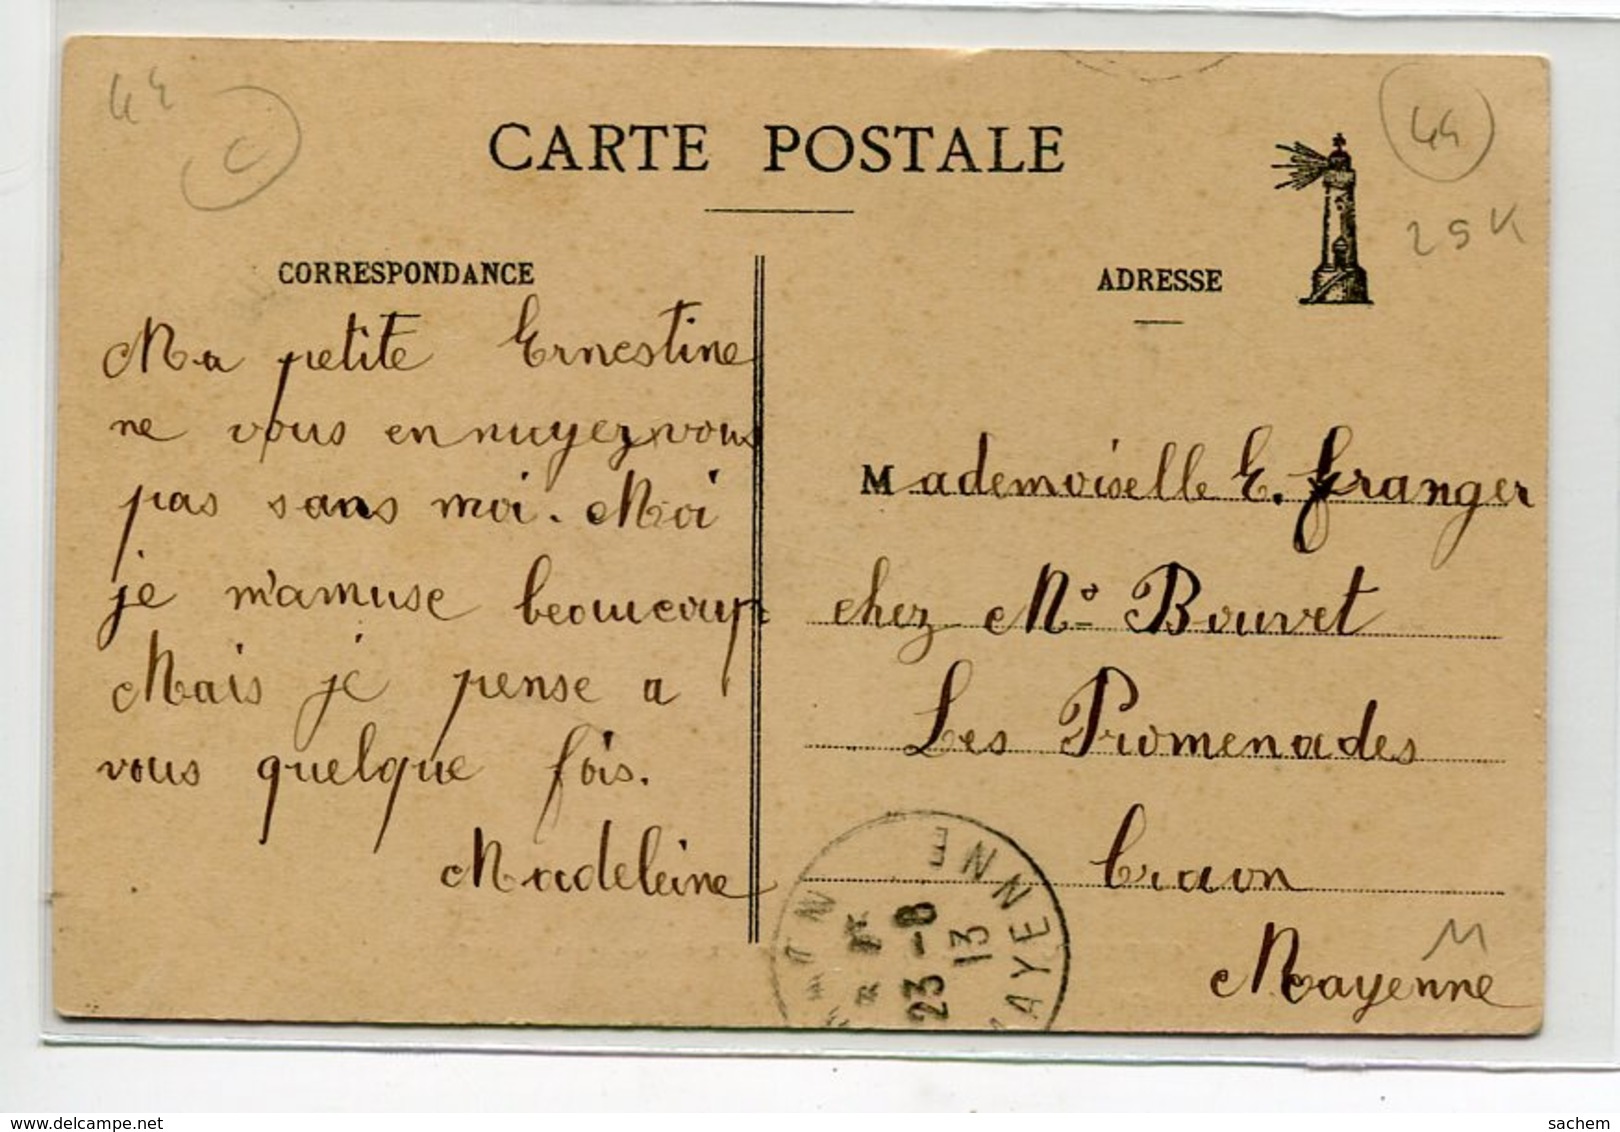 44
C
44
25K
CARTE POSTALE
CORRESPONDANCE
Ma petite Ernestine
ne vous ennuyez vous
pas sans moi. Moi
je m'amuse beaucoup
Mais je pense a
vous quelque fois.
Madeleine
ADRESSE
Mademoiselle E. Granger
chez Mr Bouvet
Les Promenades
Craon
Mayenne
M
23 -8
13
MAYENNE
sachem